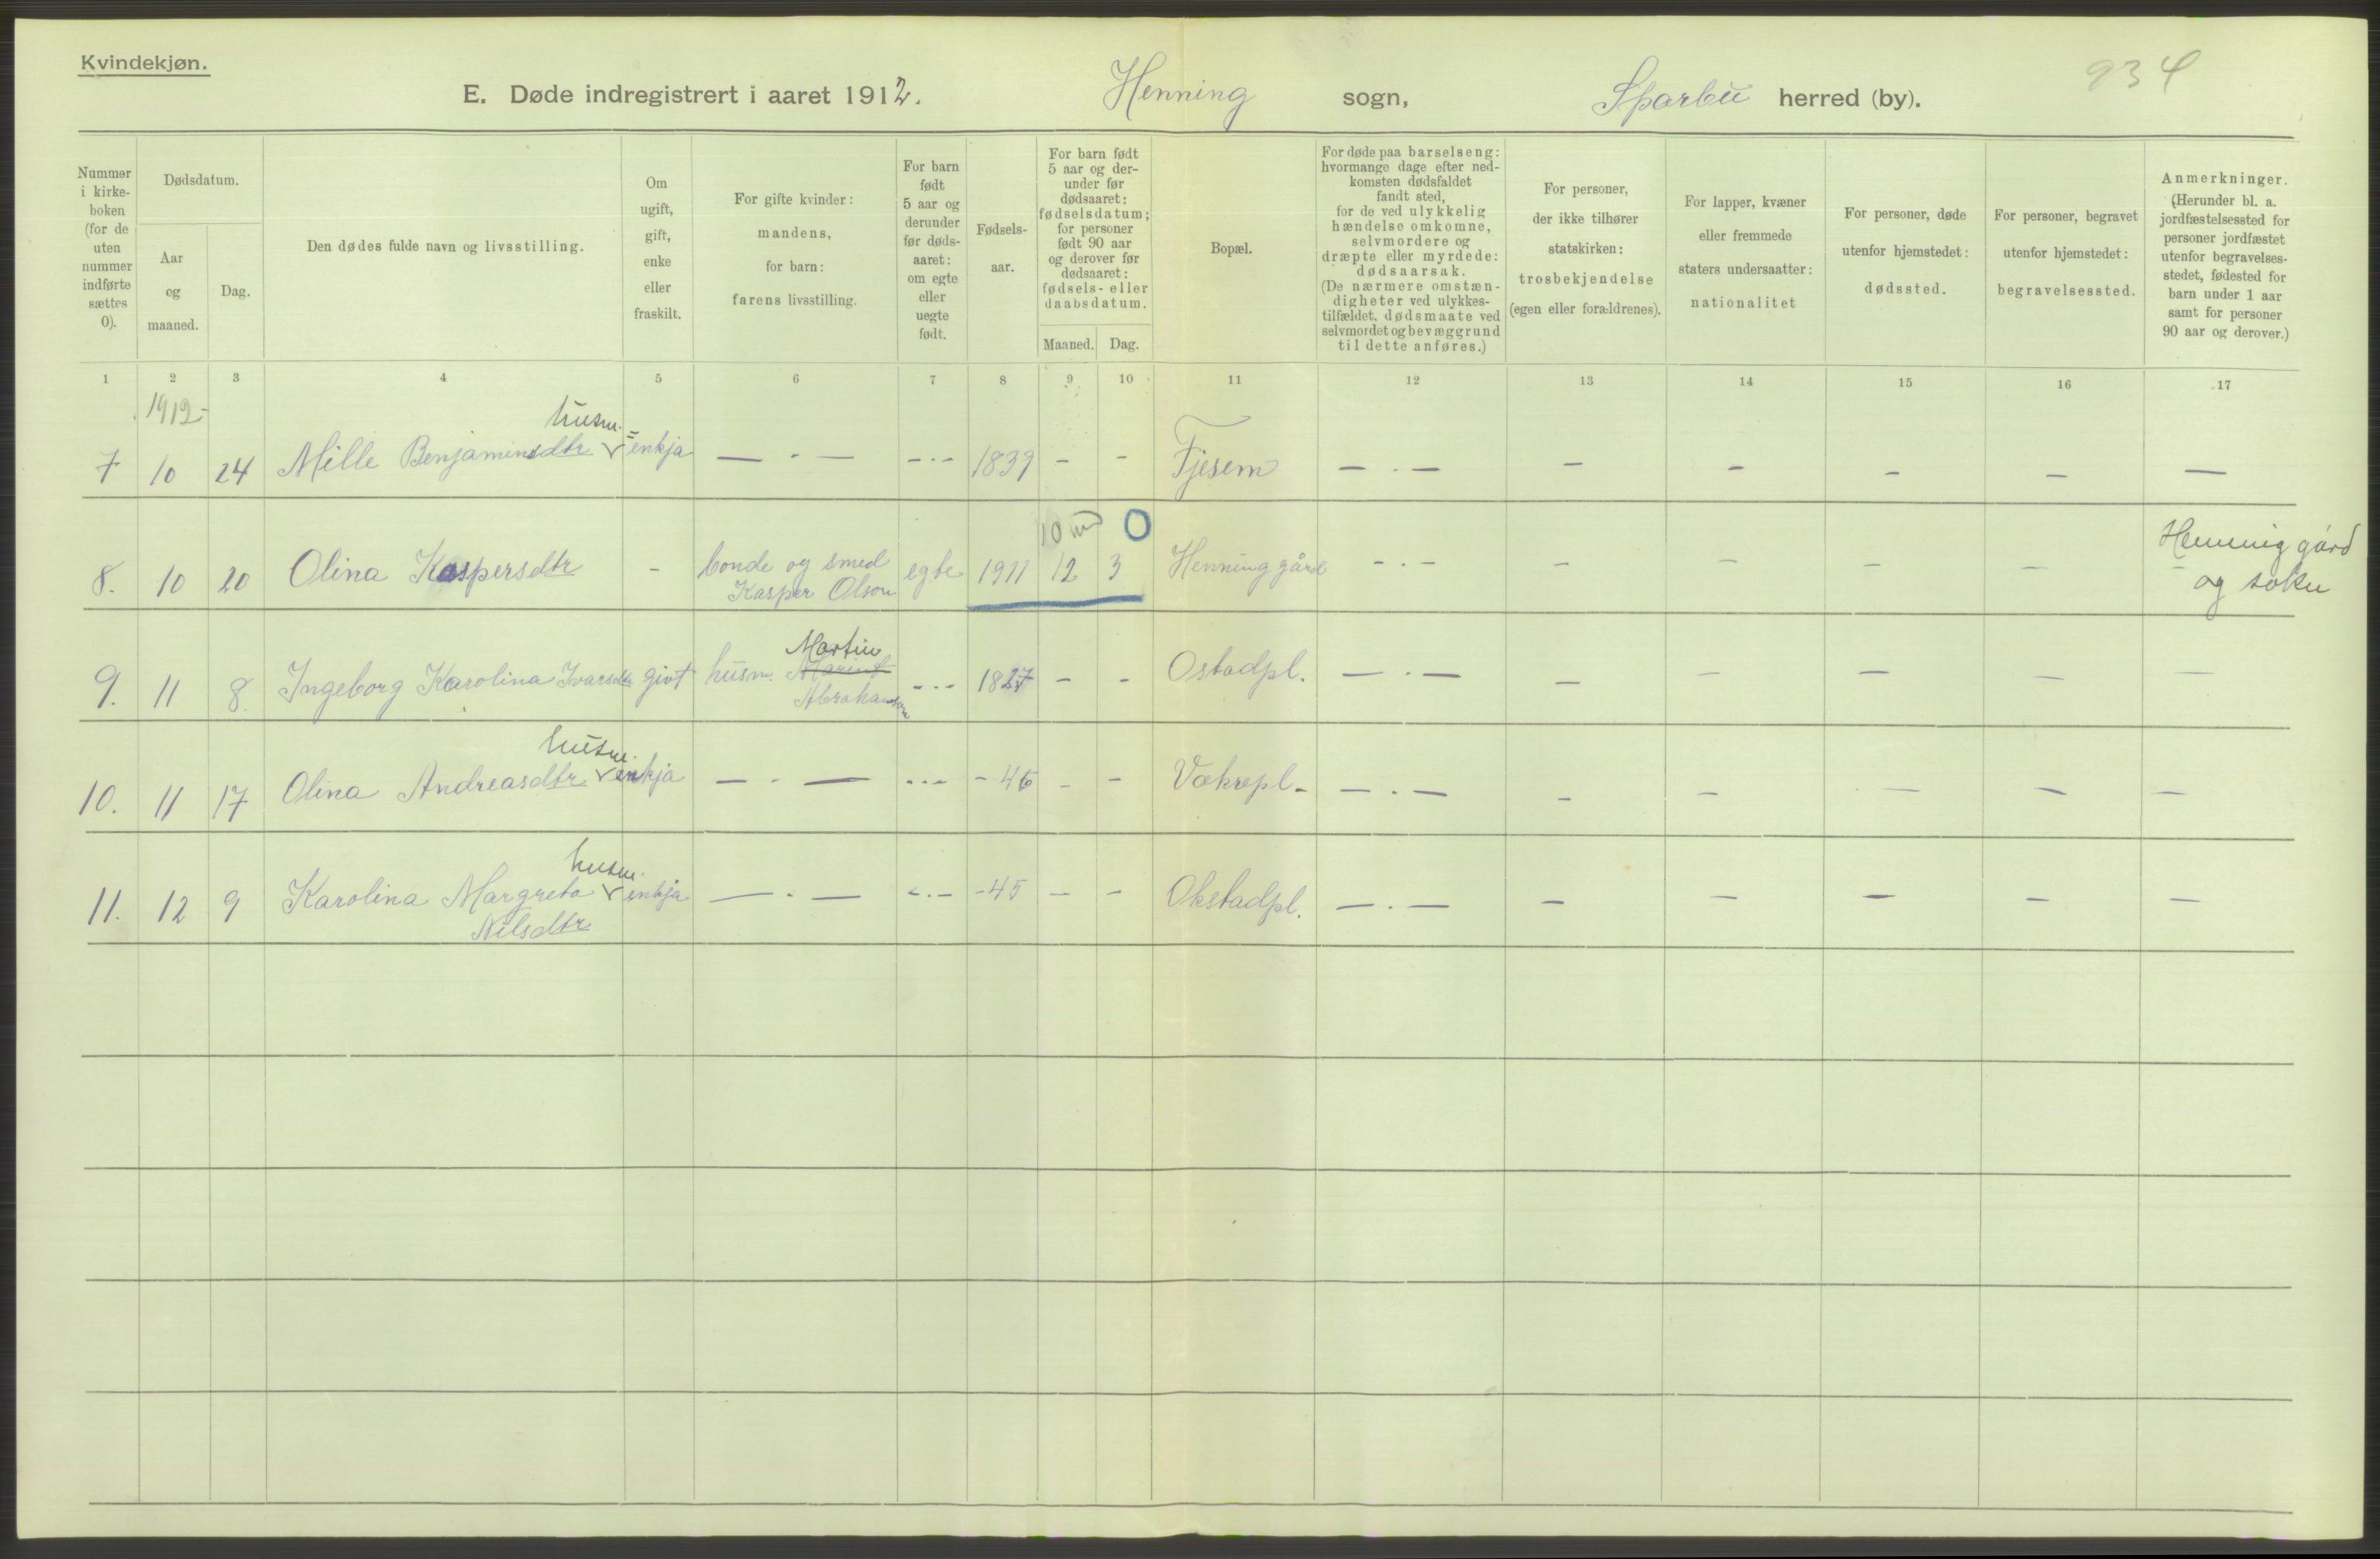 Kvindekjøn.
934
E. Døde indregistrert i aaret 1912. Henning sogn, Sparbu herred (by).
Nummer i kirke-boken (for de uten nummer indførte sættes 0).
Dødsdatum.
Aar og maaned.
Dag.
Den dødes fulde navn og livsstilling.
Om ugift, gift, enke eller fraskilt.
For gifte kvinder: mandens, for barn: farens livsstilling.
For barn født 5 aar og derunder før døds-aaret: om egte eller uegte født.
Fødsels-aar.
For barn født 5 aar og der-under før dødsaaret: fødselsdatum; for personer født 90 aar og derover før dødsaaret: fødsels- eller daabsdatum.
Maaned.
Dag.
Bopæl.
For døde paa barselseng: hvormange dage efter ned-komsten dødsfaldet fandt sted, for de ved ulykkelig hændelse omkomne, selvmordere og dræpte eller myrdede: dødsaarsak. (De nærmere omstæn-digheter ved ulykkes-tilfældet, dødsmaate ved selvmordet og bevæggrund til dette anføres.)
For personer, der ikke tilhører statskirken: trosbekjendelse (egen eller forældrenes).
For lapper, kvæner eller fremmede staters undersaatter: nationalitet
For personer, døde utenfor hjemstedet: dødssted.
For personer, begravet utenfor hjemstedet: begravelsessted.
Anmerkninger. (Herunder bl. a. jordfæstelsessted for personer jordfæstet utenfor begravelses-stedet, fødested for barn under 1 aar samt for personer 90 aar og derover.)
1 2 3 4 5 6 7 8 9 10 11 12 13 14 15 16 17
1912-
husm.
7 10 24 Mille Benjaminsdtr enkja — - — - - - 1839 - - Fjesem — . — - - - - —
10 m 0
Henning gård
8. 10 20 Olina Kaspersdtr - bonde og smed egte 1911 12 3 Henning gård - . - - - - - -
Kasper Olson
og sokn
Martin
9. 11 8. Ingeborg Karolina Ivarsdtr givt husm. - - - 1827 - - Ostadpl. — . — - - - - -
Abrahamsen
husm.
10. 11 17 Olina Andreasdtr enkja — - — - - - - 46 - - Vokrepl. — . — - - - - -
husm.
11. 12 9 Karolina Margreta enkja — . — - . - - 45 - - Okstadpl. — . — - - - - -
Nilsdtr